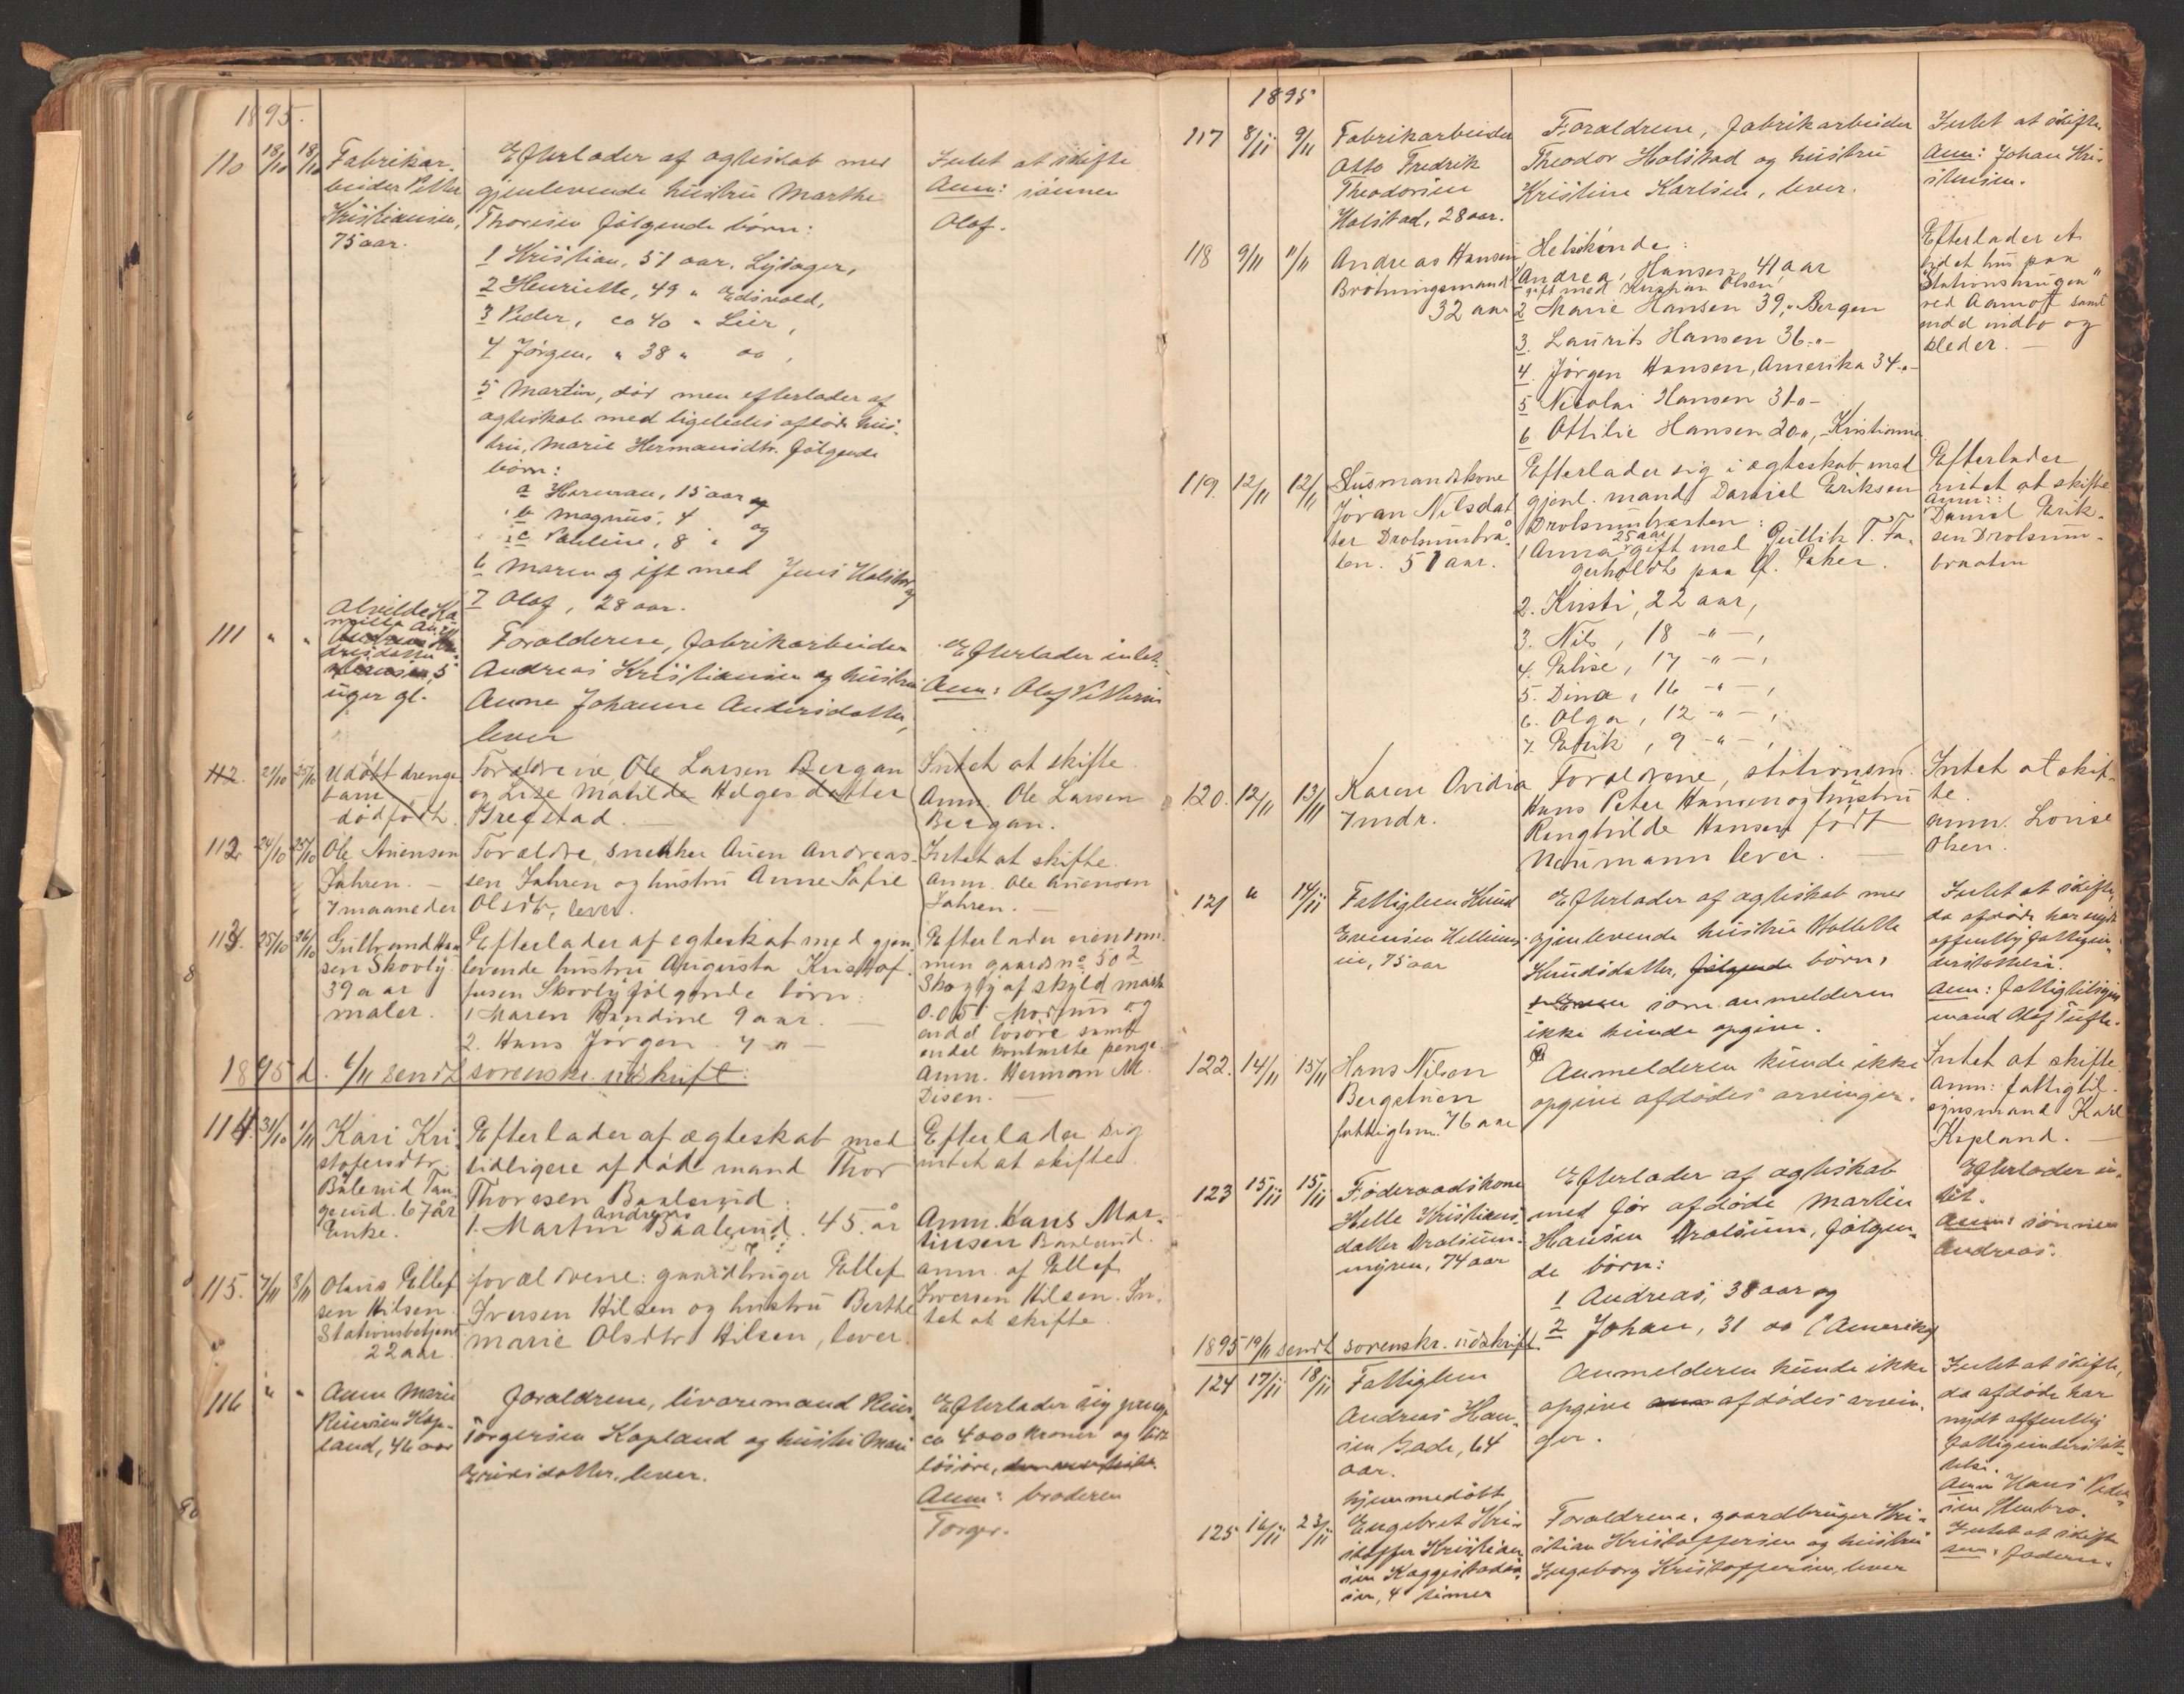 1895.
110 18/10 18/10
Fabrikar-
beider Petter
Kristiansen,
75 aar.
Efterlader af ægteskab med
gjenlevende hustru Marthe
Thoresen følgende børn:
1 Kristian, 51 aar,
2 Henriette, 49 " Edsvold,
3 Peder, ca 40 " Lier,
4 Jørgen, " 38 " do,
5 Martin, død men efterlader af
ægteskab med ligeledes afdøde hus-
tru, Marie Hermansdtr. følgende
børn:
a Herman, 15 aar og
b Magnus, 4 og
c Pauline, 8 "
6 Maren gift med Jens Halstad og
7 Olaf, 28 aar.
Intet at skifte
Anm: sønnen
Olaf.
111 " "
Alvilde Ka-
milla An-
dreasdatter
5
uger gl.
Forældrene, fabrikarbeider
Andreas Kristiansen og hustru
Anne Johanne Andersdatter,
lever
Efterlader intet.
Anm: Olaf Pettersen
112. 21/10 25/10
Udøbt drenge
barn
dødfødt.
Forældrene Ole Larsen Bergan
og Lise Matilde Helgesdatter
Grefstad.
Intet at skifte.
Anm. Ole Larsen
Bergan.
112 24/10 25/10
Ole Auensen
Jahren. –
7 maaneder
Forældre, snekker Auen Andreas-
sen Jahren og hustru Anne Sofie
Olsdtr, lever.
Intet at skifte.
Anm. Ole Auensen
Jahren. –
113. 25/10 26/10
Gulbrand Han
sen Skovly
39 aar
maler.
Efterlader af egteskab med gjen-
levende hustru Augusta Kristof-
fersen Skovly følgende børn:
1 Maren Randine 9 aar. –
2. Hans Jørgen. 7 " –
Efterlader eiendom-
men gaardsno 50 2
Skogly af skyld mark
0.05 i Modum og
endel løsøre samt
endel kontante penge.
Anm. Herman M.
Disen. –
1895 d. 6/11 sendt sorenskr. udskrift.
114. 31/10 1/11
Kari Kri
stofersdtr
Bålerud Tan-
gerud. 67 år
Enke.
Efterlader af ægteskab med
tidligere afdøde mand Thor
Thoresen Baalerud:
1. Martin Andreas Baalerud. 45. år
Efterlader sig
intet at skifte.
Anm. Hans Mar-
tinsen Baalerud.
115. 7/11 8/11
Olaus Ellef
sen Hilsen.
Stationsbetjent
22 aar.
forældrene: gaardbruger Ellef
Iversen Hilsen og hustru Berthe
Marie Olsdtr Hilsen, lever.
anm. af Ellef
Iversen Hilsen. In-
tet at skifte.
116 " "
Anne Marie
Reiersen Kop-
land, 46 aar
Forældrene, livøremand Reier
Torgersen Kopland og hustru Mari
Eriksdatter, lever.
Efterlader sig penge
ca 4000 kroner og lidt
løsøre,
Anm: broderen
Torger.
1895
117 8/11 9/11
Fabrikarbeider
Otto Fredrik
Theodorsen
Halstad, 28 aar.
Forældrene, fabrikarbeider
Theodor Halstad og hustru
Kristine Karlsen, lever.
Intet at skifte.
Anm: Johan Kri-
stensen.
118 9/11 11/11
Andreas Hansen
Brotningsmand
32 aar
Helsøskende:
1 Andrea Hansen 41 aar
gift med Kristian Olsen
2 Marie Hansen 39 " Bergen
3. Laurits Hansen 36 –"–
4. Jørgen Hansen, Amerika 34 –"–
5 Nicolai Hansen 31 –"–
6 Ottilie Hansen 20 –"–, Kristiania
Efterlader et
lidet hus paa
"Stationshaugen"
ved Aamot samt
endel indbo og
kleder. –
119. 12/11 12/11
Husmandskone
Jøran Nilsdat
ter Drolsumbrå-
ten. 51 aar.
Efterlader sig i ægteskab med
gjenl. mand Daniel Eriksen
Drolsumbraaten:
1 Anna 25 aar gift med Gullik T. Fa-
gerholdt paa Eker.
2. Kristi, 22 aar,
3. Nils, 18 –"–,
4. Elise, 17 –"–,
5. Dina, 16 –"–,
6. Olga, 12 –"–,
7. Erik, 9 –"–,
Efterlader
intet at skifte
Anm::
Daniel Erik-
sen Drolsum-
braaten
120. 12/11 13/11
Karen Ovidia
7 mdr.
Forældrene, stationsm.
Hans Peter Hansen og hustru
Ringhilde Hansen født
Naumann lever. –
Intet at skif-
te.
anm. Lovise
Olsen.
121 " 14/11
Fattiglem Knud
Evensen
75 aar
Efterlader af ægteskab med
gjenlevende hustru
Knudsdatter, følgende børn,
som anmelderen
ikke kunde opgive.
Intet at skifte,
da afdøde har nydt
offentlig fattigun-
derstøttelse.
Anm: fattigtilsyns
mand Olaf Tufte.
122. 14/11 15/11
Hans Nilsen
Bergstuen
fattiglem. 76 aar
Anmelderen kunde ikke
opgive afdødes arvinger.
Intet at skifte.
Anm: fattigtil-
synsmand Karl
Kopland. –
123 15/11 15/11
Føderaadskone
Helle Kristians-
datter Drolsum-
myren, 74 aar
Efterlader af ægteskab
med før afdøde Martin
Hansen Drolsum, følgen-
de børn:
1 Andreas, 38 aar og
2 Johan, 31 do (Amerika)
Efterlader in-
tet.
Anm: sønnen
Andreas.
1895 19/11 sendt sorenskr. udskrift.
124 17/11 18/11
Fattiglem
Andreas Han-
sen Gade, 64
aar.
Anmelderen kunde ikke
opgive afdødes arvin-
ger.
Intet at skifte,
da afdøde har
nydt offentlig
fattigunderstøt-
telse.
Anm Hans Peder-
sen Stenbro.
125 16/11 23/11
hjemmedøbt
Engebret Kri-
stoffer Kristian
sen Kaggestad
4 timer
Forældrene, gaardbruger Kri-
stian Kristoffersen og hustru
Ingeborg Kristoffersen, lever
Intet at skifte
Anm: faderen.